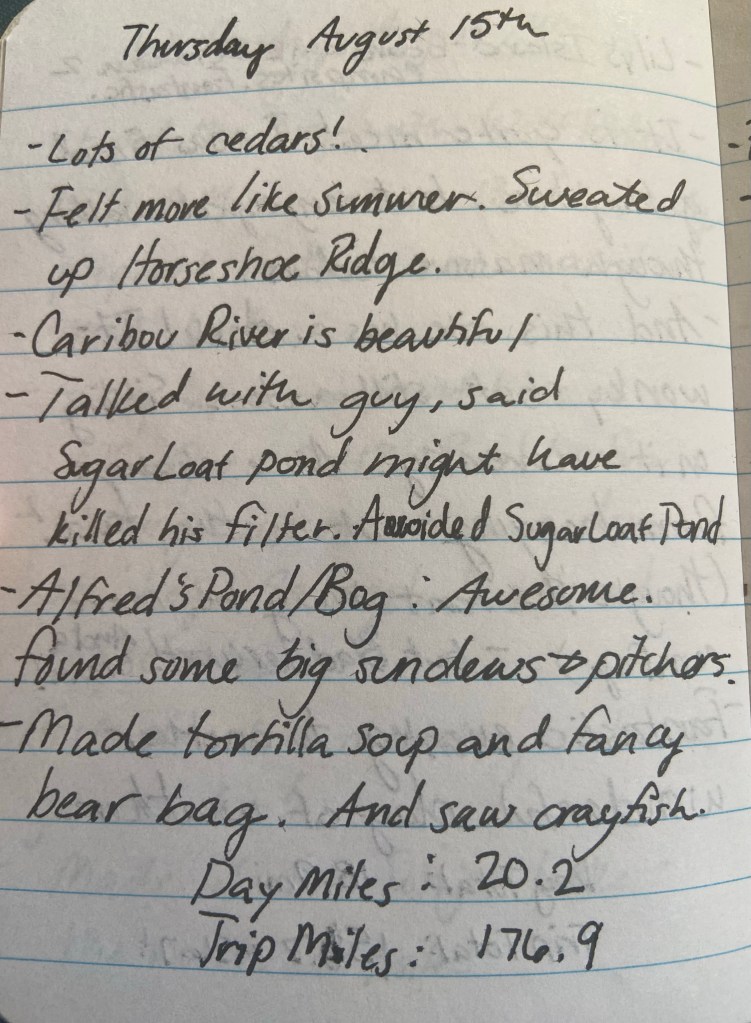 Thursday August 15th
- Lots of cedars!
- Felt more like summer. Sweated
up Horseshoe Ridge.
- Caribou River is beautiful
- Talked with guy, said
SugarLoaf pond might have
killed his filter. Avoided SugarLoaf Pond
- Alfred's Pond/Bog: Awesome.
found some big sundews + pitchers.
- Made tortilla soup and fancy
bear bag. And saw crayfish.
Day Miles: 20.2
Trip Miles: 176.9